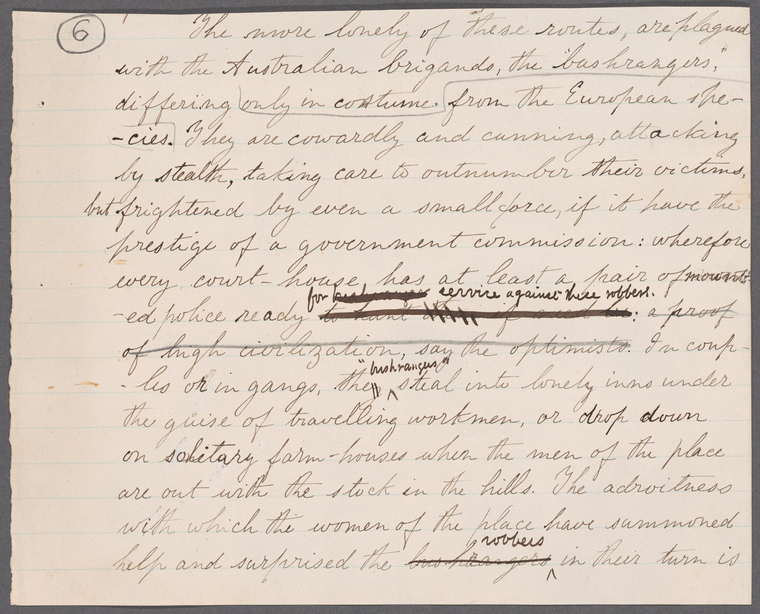 6
The more lonely of these routes, are plagued
with the Australian brigands, the "bushrangers,"
differing only in costume from the European spe-
-cies. They are cowardly and cunning, attacking
by stealth, taking care to outnumber their victims,
but frightened by even a small force, if it have the
prestige of a government commission: wherefore
every court-house has at least a pair of mount-
for service against these robbers.
-ed police ready to hunt : a proof
of high civilization, say the optimists. In coup-
"bushrangers"
-les or in gangs, the steal into lonely inns under
the guise of travelling workmen, or drop down
on solitary farm-houses when the men of the place
are out with the stock in the hills. The adroitness
with which the women of the place have summoned
robbers
help and surprised the bushrangers in their turn is